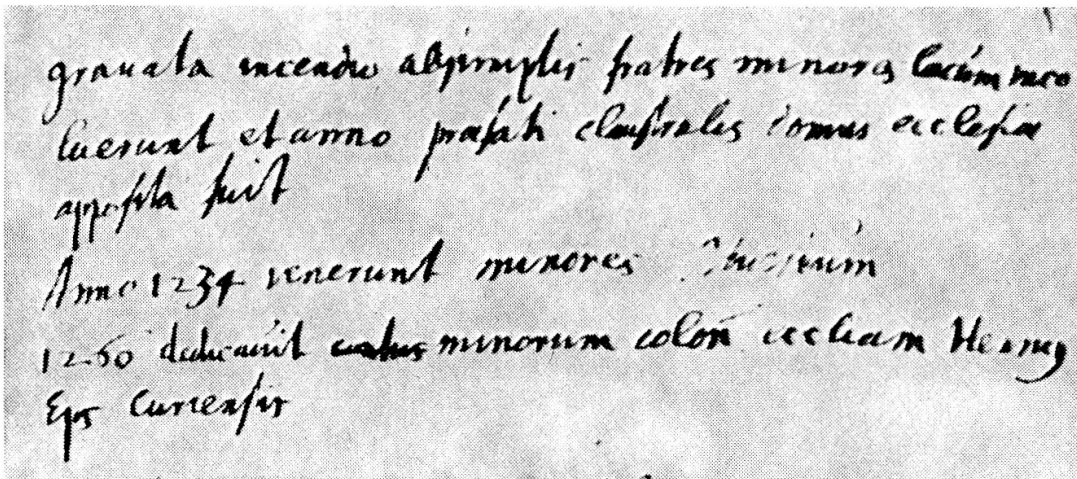 grauata incendio fratres minores locum inco
luerunt et anno præfati claustralis domus ecclesiæ
apposita fuit
Anno 1234 venerunt minores
1260 dedicauit minorum colon eccliam
Eps Curiensis